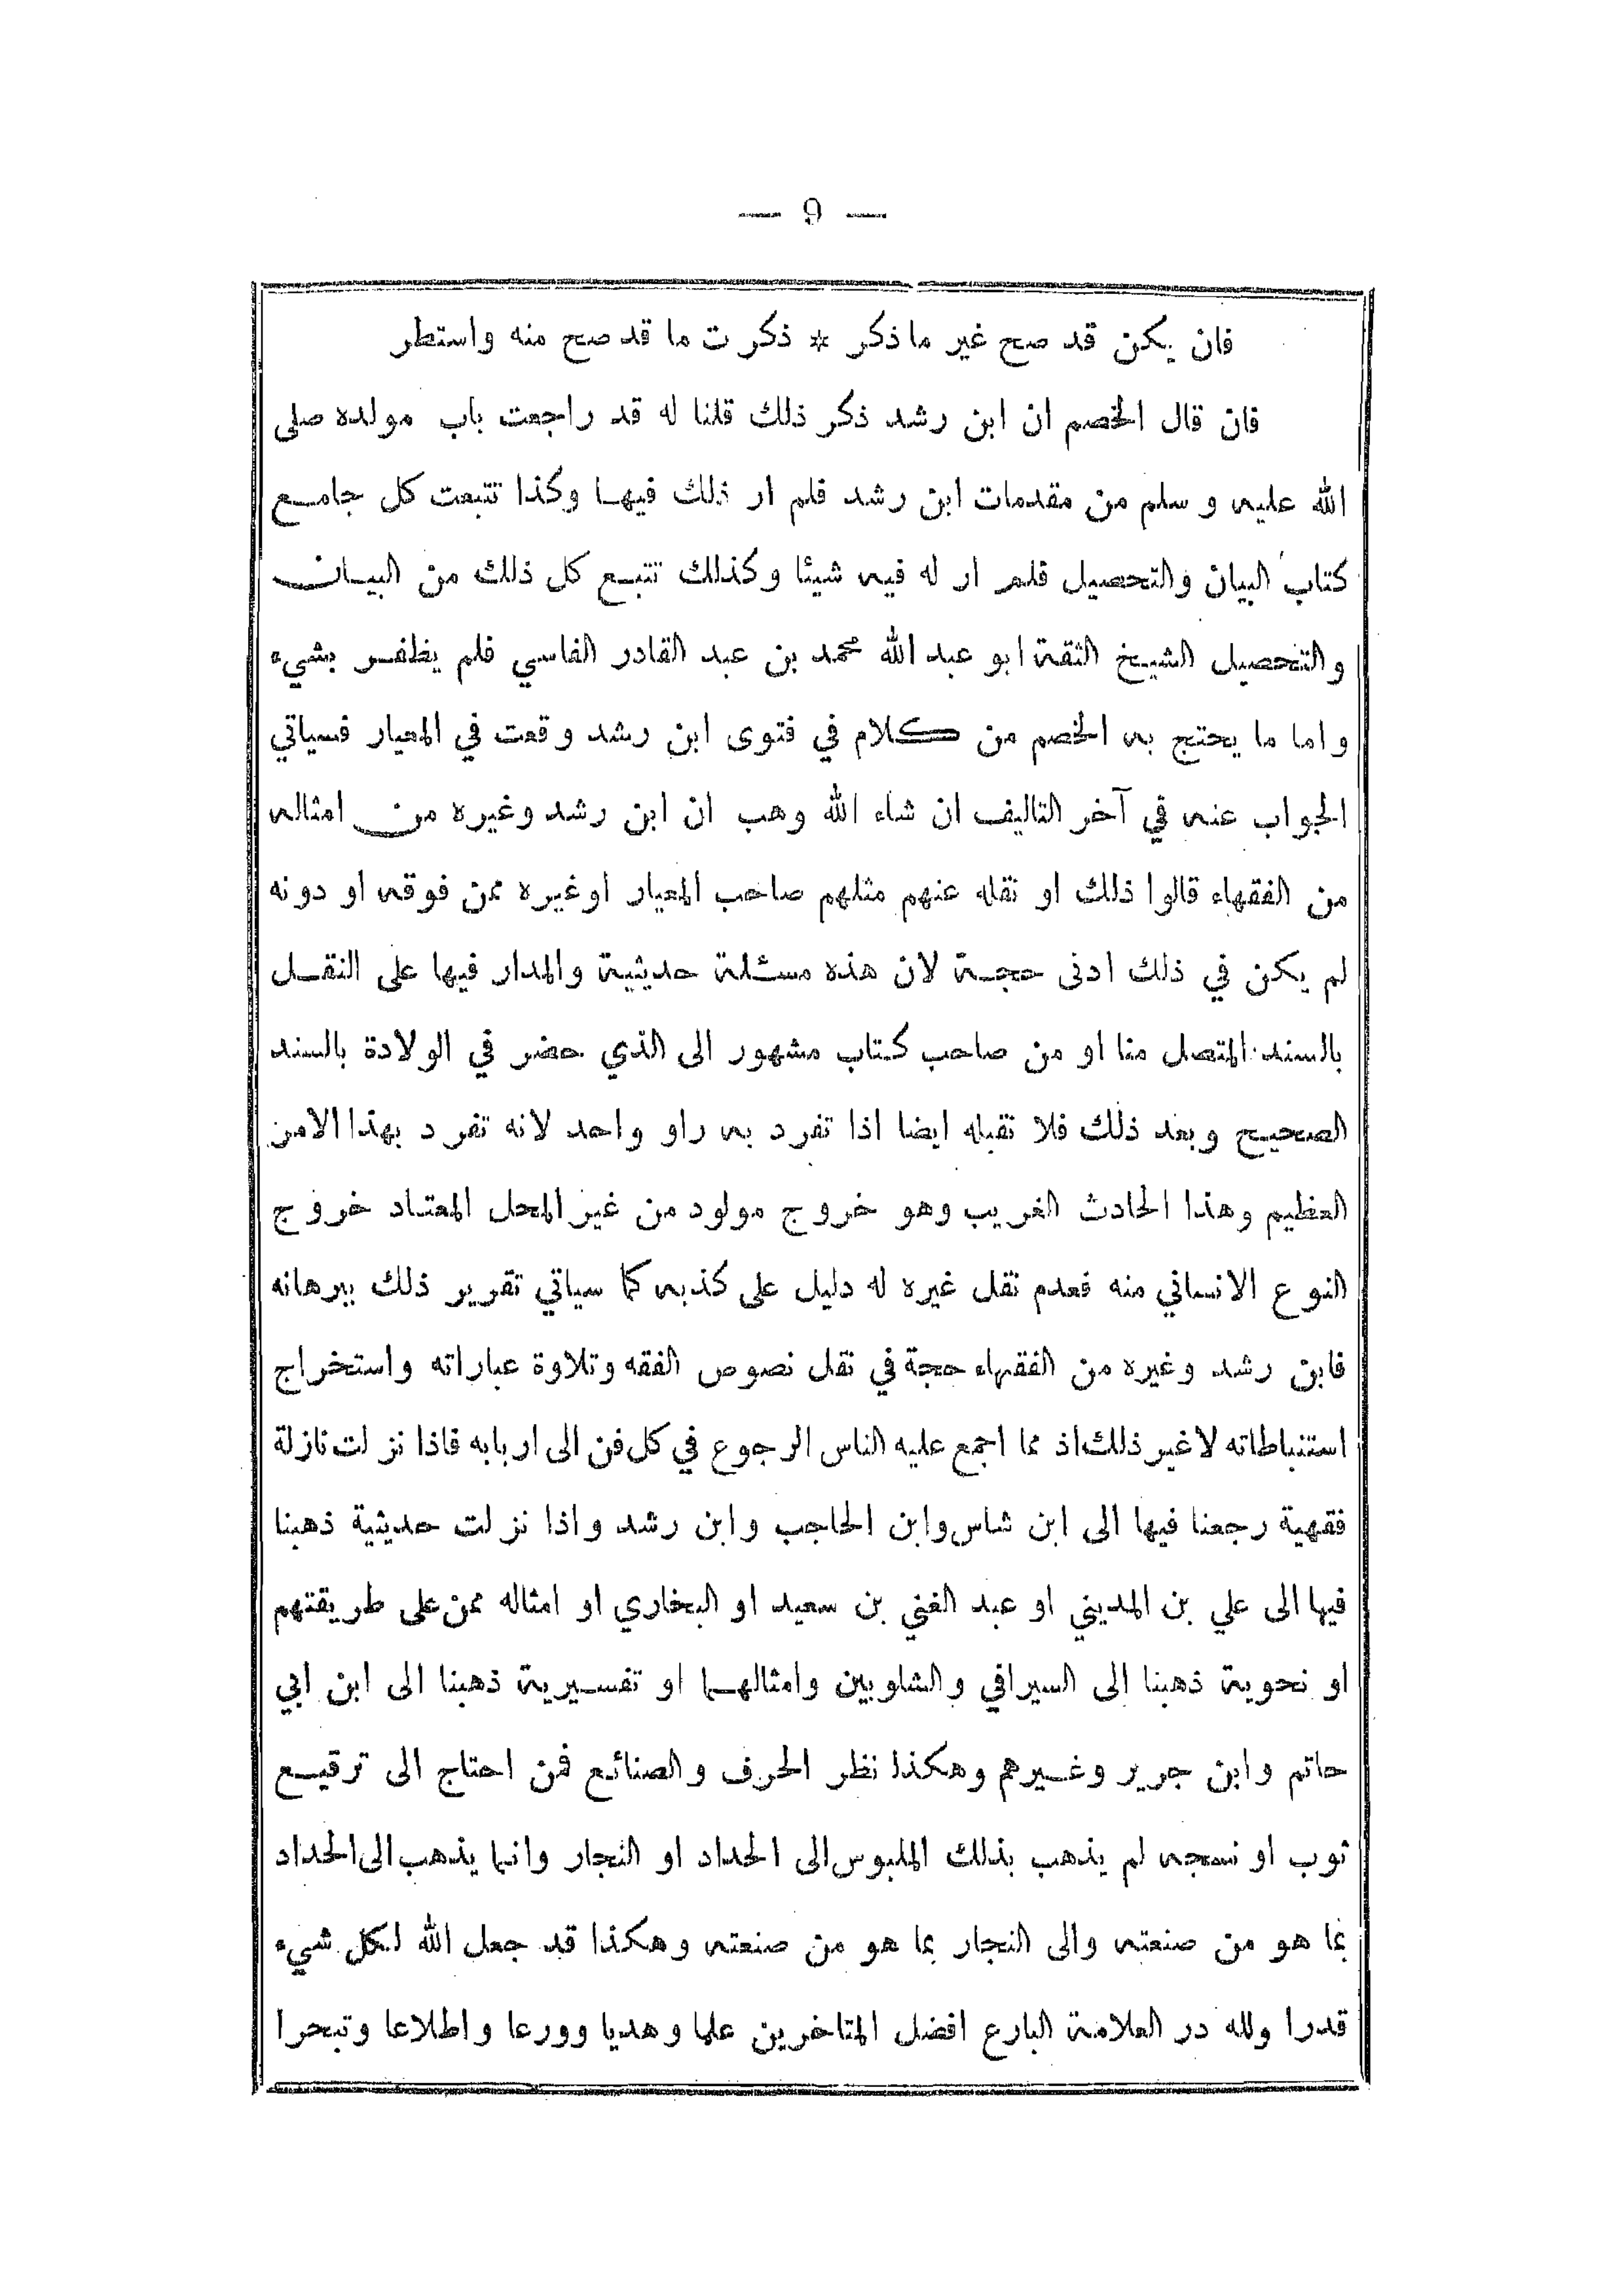 — 9 —
فان يكن قد صح غير ما ذكر * ذكرت ما قد صح منه واستطر
فان قال الخصم ان ابن رشد ذكر ذلك قلنا له قد راجعت باب مولده صلى
الله عليه وسلم من مقدمات ابن رشد فلم ار ذلك فيها وكذا تتبعت كل جامع
كتاب البيان والتحصيل فلم ار له فيه شيئا وكذلك تتبع كل ذلك من البيان
والتحصيل الشيخ الثقة ابو عبد الله محمد بن عبد القادر الفاسي فلم يظفر بشيء
واما ما يحتج به الخصم من كلام في فتوى ابن رشد وقعت في المعيار فسياتي
الجواب عنه في آخر التاليف ان شاء الله وهب ان ابن رشد وغيره من امثاله
من الفقهاء قالوا ذلك او نقله عنهم مثلهم صاحب المعيار اوغيره ممن فوقه او دونه
لم يكن في ذلك ادنى حجة لان هذه مسئلة حديثية والمدار فيها على النقل
بالسند المتصل منا او من صاحب كتاب مشهور الى الذي حضر في الولادة بالسند
الصحيح وبعد ذلك فلا نقبله ايضا اذا تفرد به راو واحد لانه تفرد بهذا الامر
العظيم وهذا الحادث الغريب وهو خروج مولود من غير المحل المعتاد خروج
النوع الانساني منه فعدم نقل غيره له دليل على كذبه كما سياتي تقرير ذلك ببرهانه
فابن رشد وغيره من الفقهاء حجة في نقل نصوص الفقه وتلاوة عباراته واستخراج
استنباطاته لاغير ذلك اذ مما اجمع عليه الناس الرجوع في كل فن الى اربابه فاذا نزلت نازلة
فقهية رجعنا فيها الى ابن شاس وابن الحاجب وابن رشد واذا نزلت حديثية ذهبنا
فيها الى علي بن المديني او عبد الغني بن سعيد او البخاري او امثاله ممن على طريقتهم
او نحوية ذهبنا الى السيرافي والشلوبين وامثالهما او تفسيرية ذهبنا الى ابن ابي
حاتم وابن جرير وغيرهم وهكذا نظر الحرف والصنائع فمن احتاج الى ترقيع
ثوب او نسجه لم يذهب بذلك الملبوس الى الحداد او النجار وانما يذهب الى الحداد
بما هو من صنعته والى النجار بما هو من صنعته وهكذا قد جعل الله لكل شيء
قدرا ولله در العلامة البارع افضل المتاخرين علما وهديا وورعا واطلاعا وتبحرا